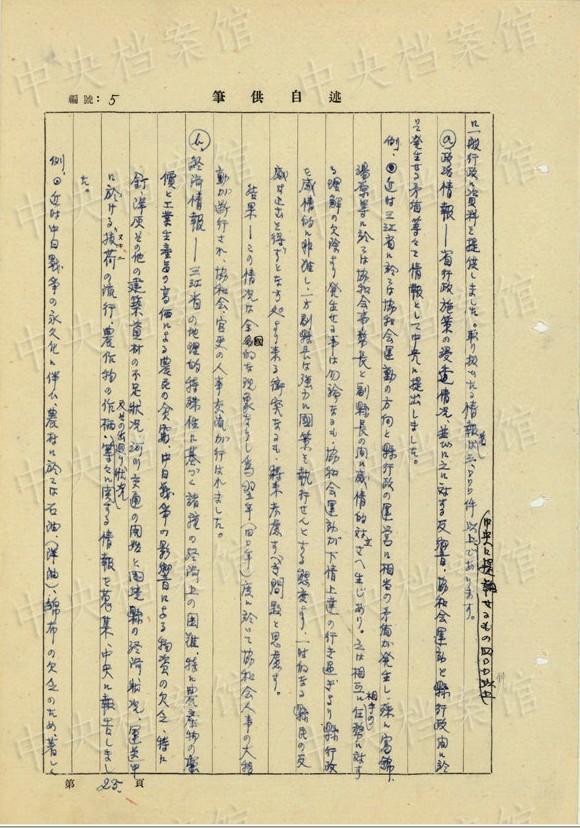 中央档案馆
編號：5
筆供自述
に一般行政に資料を提供しました。取り扱はれた情報は三、000件以上であります。
中央に提報せるもの四00以上
ⓐ政治情報——省行政施策の浸透情況、並びに之に対する反響、協和会運動と縣行政間に於
に発生せる矛盾等を情報として中央に提出しました。
例、近は三江省に於ては協和会運動の方向と縣行政の運営に相当の矛盾が発生し、殊に富錦、
湯原等に於ては協和会事務長と副縣長の間に感情的対立さへ生じあり。之は相互に任務に対す
相手の
る理解の欠陥より発生せる事は勿論なるも、協和会運動が下情上達の行き過ぎより縣行政
を感情的に非難し、一方副縣長は強力に国策を執行せんとする態度より、一は
縣民の反
感は止むを得ずとなす処より来る衝突なるも、将来考慮すべき問題と思慮す。
結果——この情況は全国的な現象なりし為翌年（四0年）度に於いて協和会人事の大移
動が断行され、協和会、官吏の人事交流が行はれました。
ⓑ経済情報——三江省の地理的特殊性に基づく諸種の経済上の困難、特に農産物の廉
價と工業生産品の高価による農民の貧窮、中日戦争の影響による物資の欠乏、特に
釘、洋灰その他の建築資材の不足状況、河川交通の閉鎖と周辺縣の経済状況、運送中
に於ける抜荷の流行、農作物の作柄、及その出廻り状況等々に関する情報を蒐集、中央に報告しまし
た。
例、近は中日戦争の永久化に伴ひ、農村に於ては石油、（洋油）、綿布の欠乏のため、著しく
第25頁